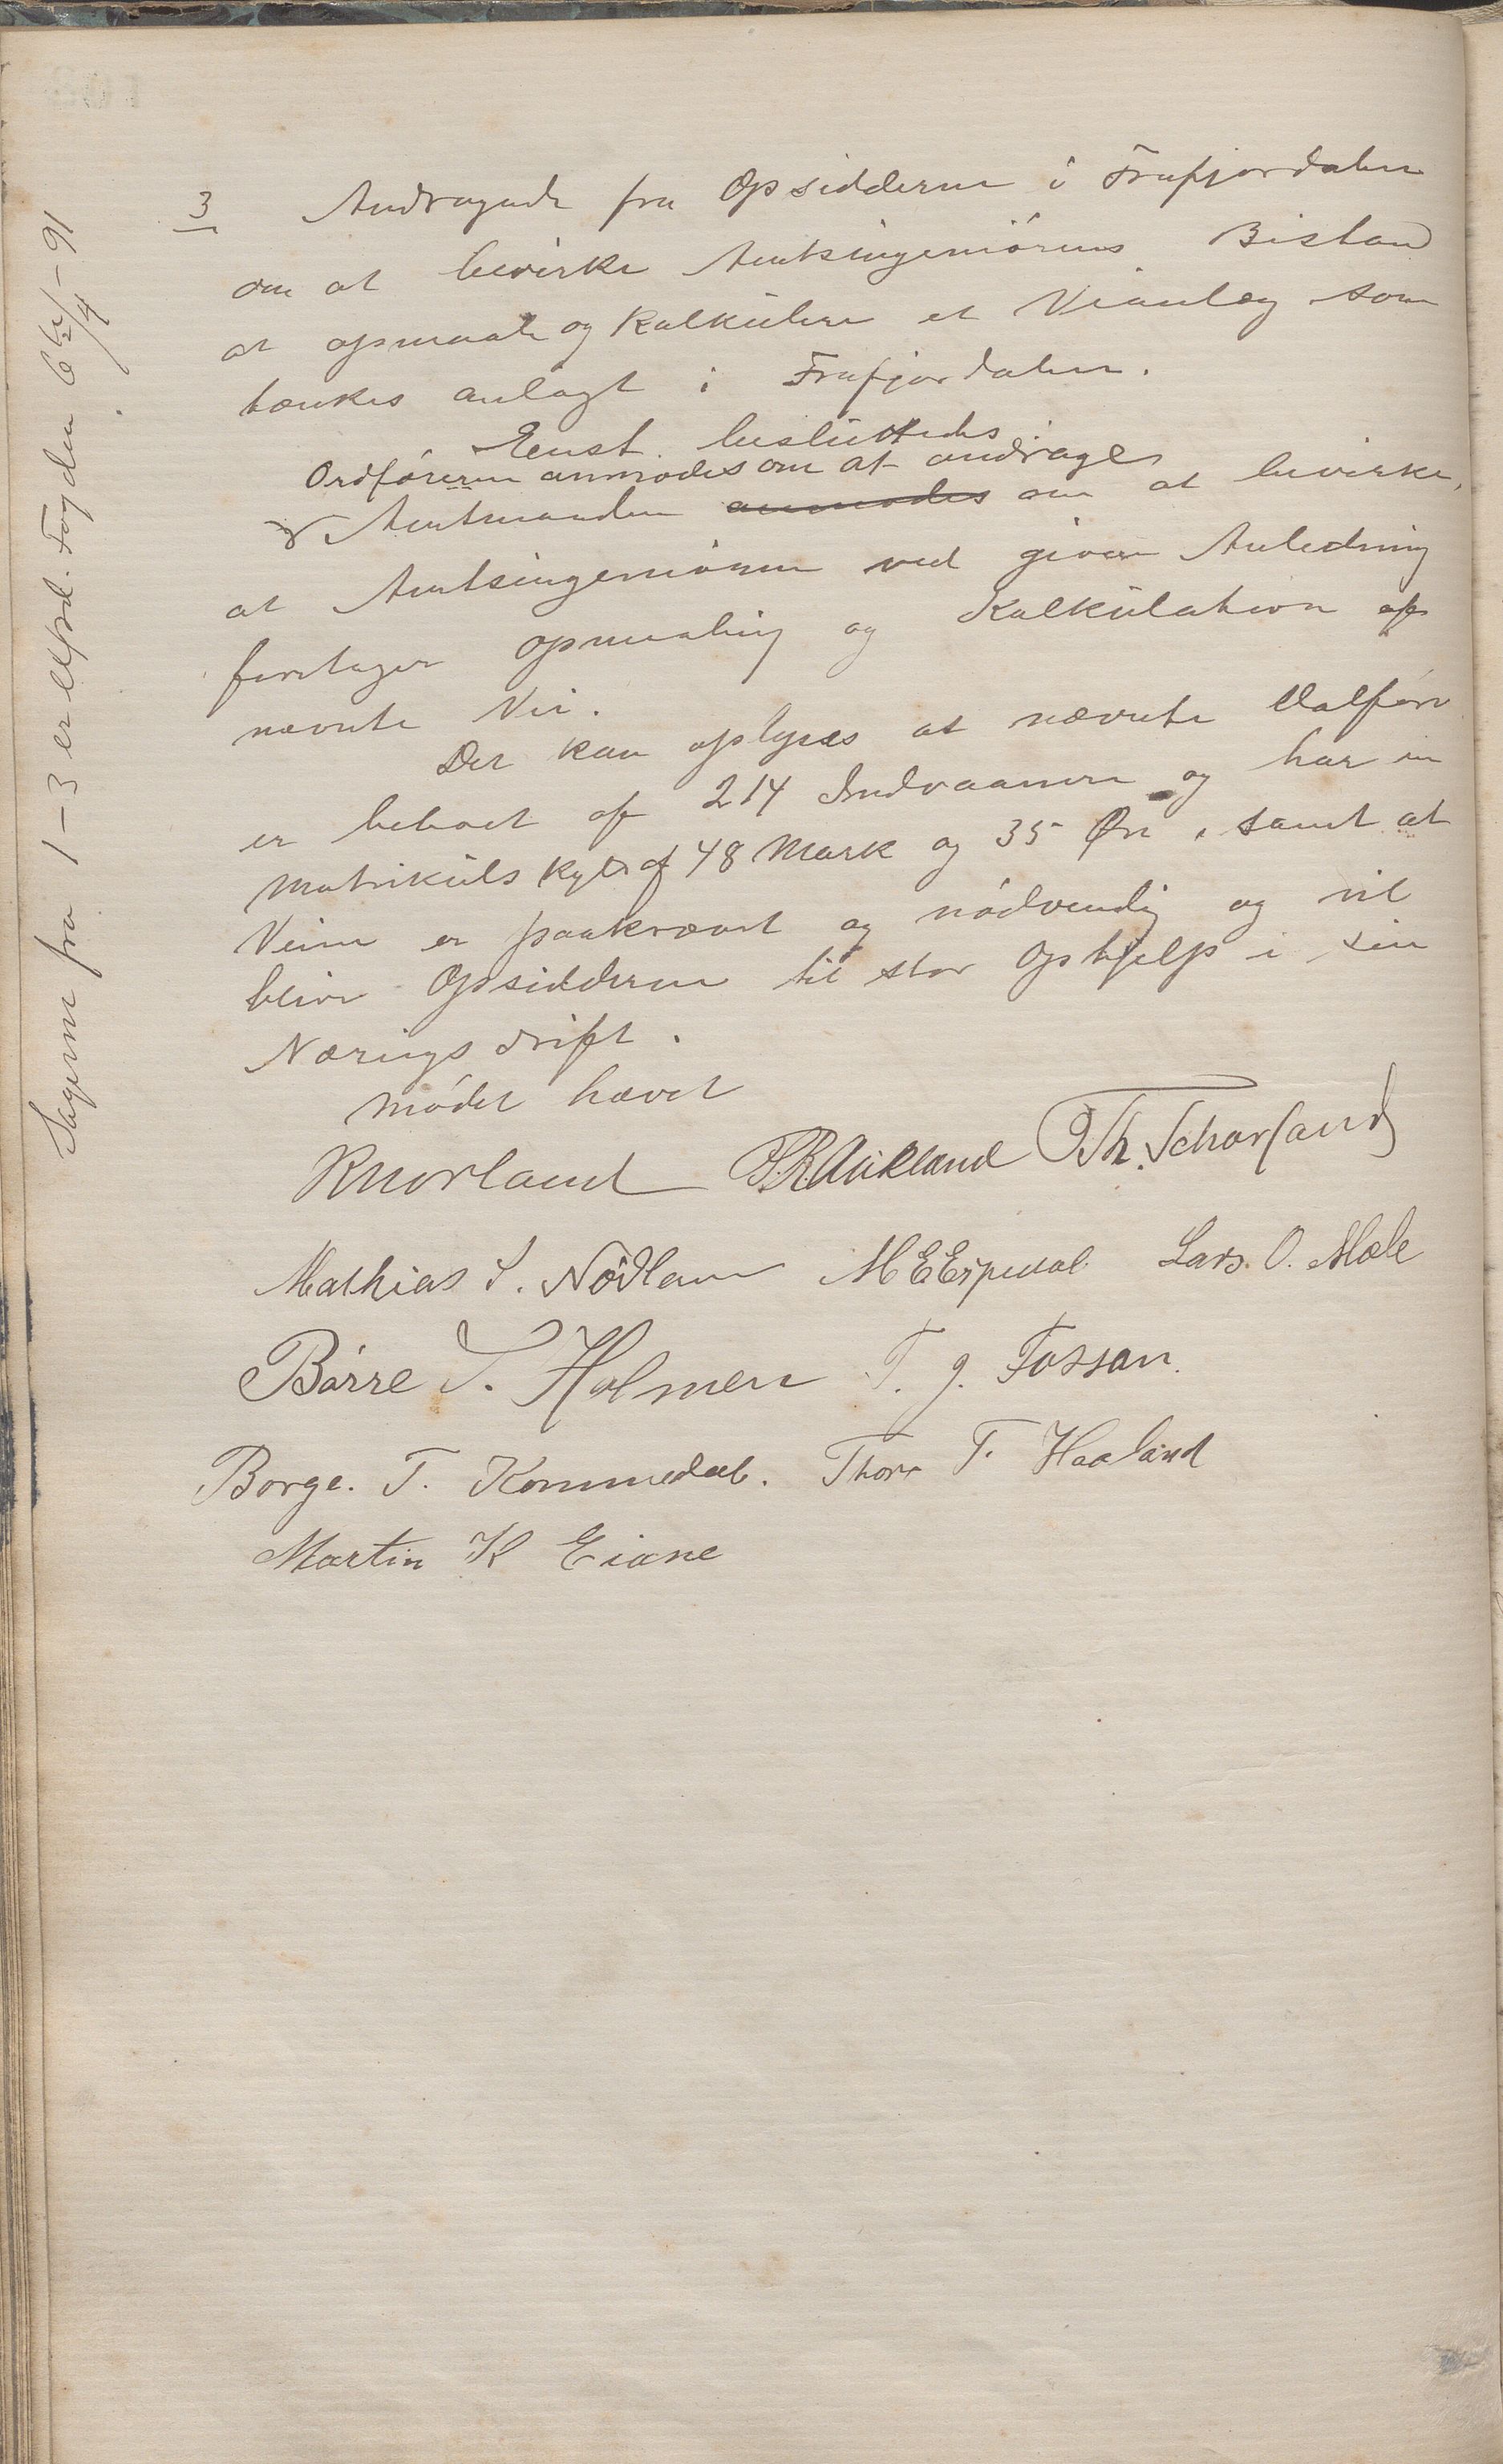 3 Andragende fra Opsidderne i Frafjordalen
om at bevirke Amtsingeniörens Bistand
at opmaale og Kalkulere et Veianlæg som
tænkes anlagt i Frafjordalen.
Enst. besluttedes
Ordföreren anmodes om at andrage
Amtmanden anmodes om at bevirke,
at Amtsingeniören ved given Anledning
foretager opmaaling og Kalkulation af
nævnte Vei.
Det kan oplyses at nævnte Dalföre
er beboet af 214 Indvaanere og har en
Matrikulskyld af 48 Mark og 35 Øre, samt at
Veien er paakrævet og nödvendig og vil
blive Opsidderne til stor Ophjelp i sin
Næringsdrift.
Mödet hævet
RMorland P.R. Aukland Th. Scharland
Mathias S. Nödland M E Espedal Lars. O. Mæle
Börre T. Holmen T. J. Fossan.
Borge. T. Kommedal. Thore T. Haaland
Martin K Eiane
Sagerne fra 1-3 er Expd. Fogden 6te/4-91